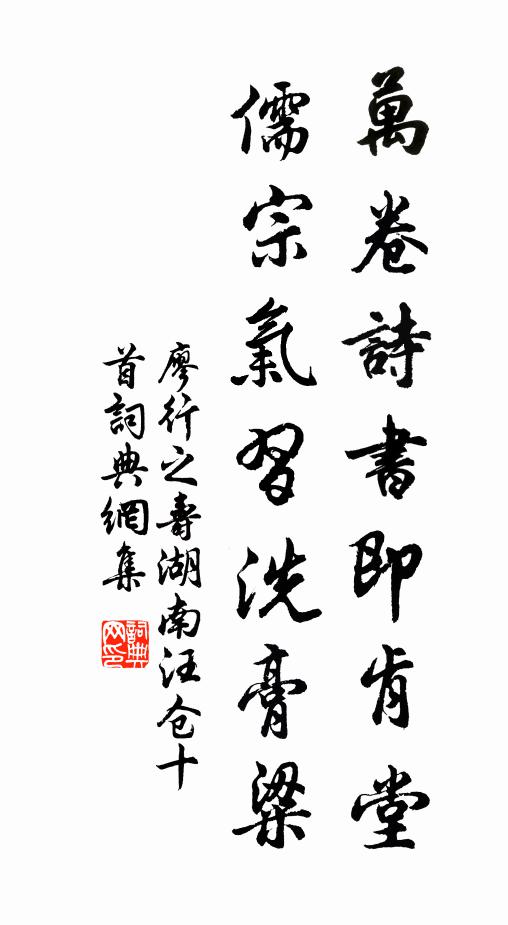 萬卷詩書即肯堂
儒宗氣習洗膏粱
廖行之壽湖南汪仓十
首詞典網集
詞典網印